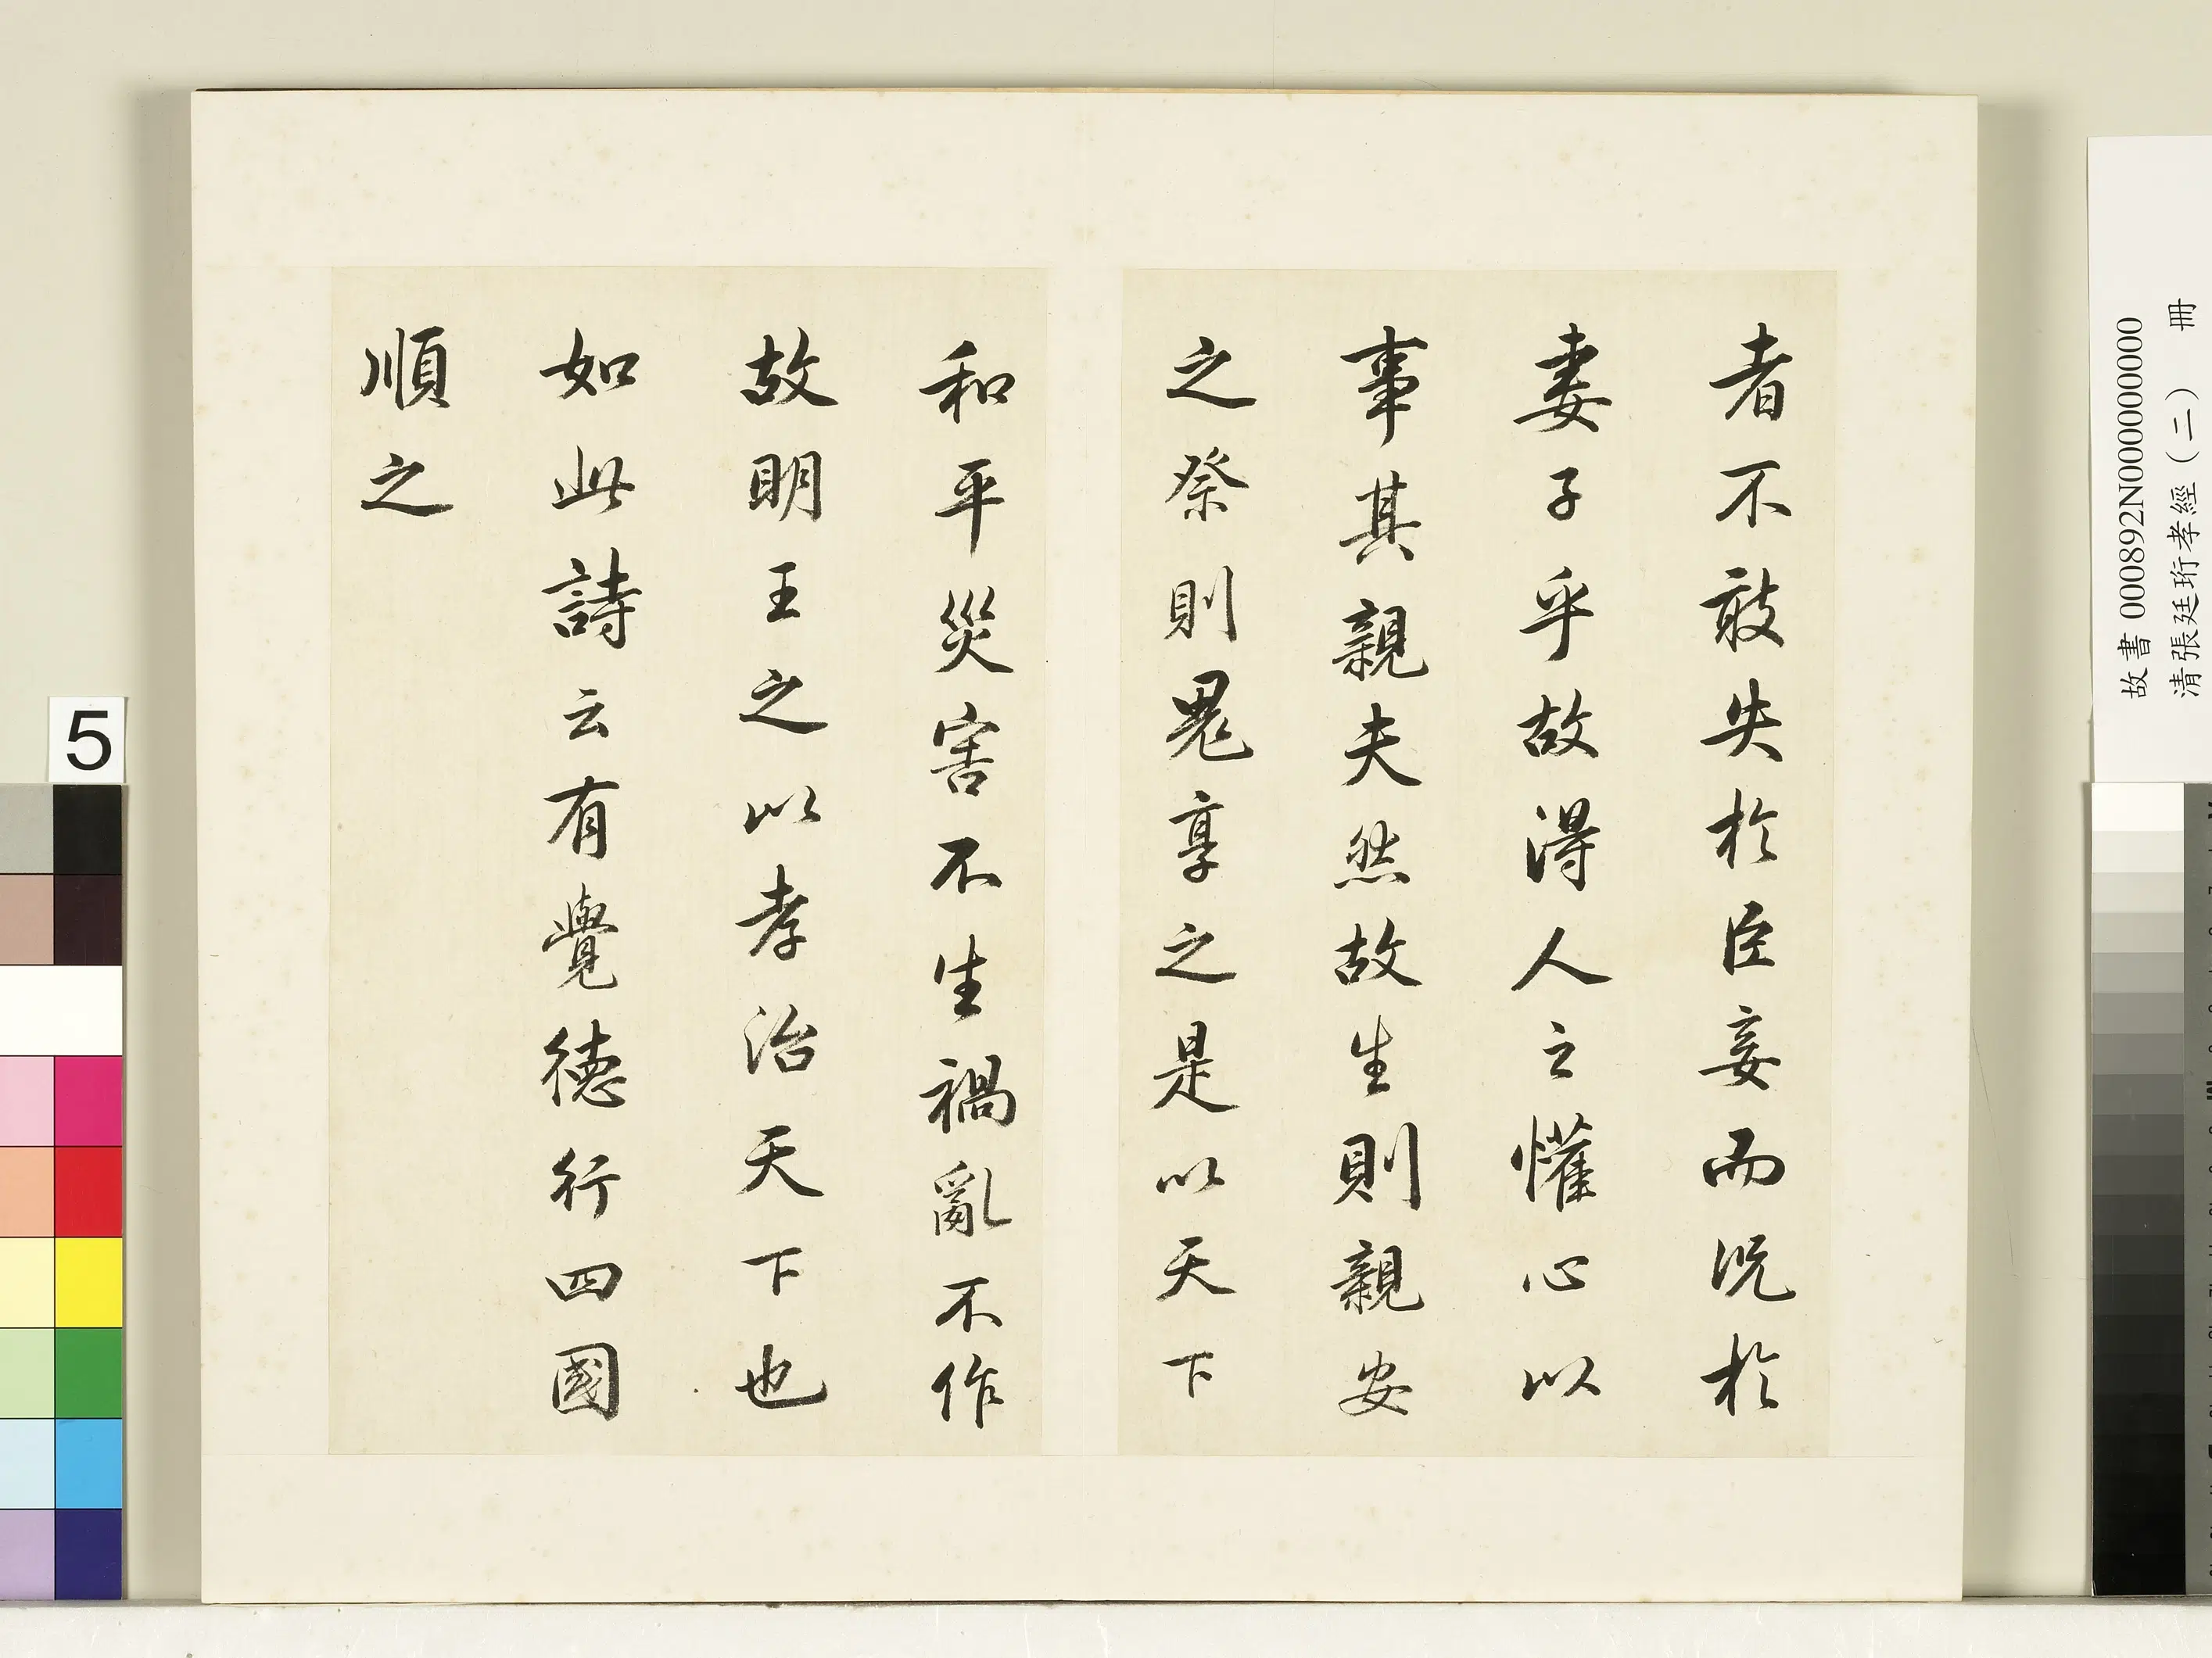 者不敢失於臣妾而況於
妻子乎故得人之懽心以
事其親夫然故生則親安
之祭則鬼享之是以天下
和平災害不生禍亂不作
故明王之以孝治天下也
如此詩云有覺德行四國
順之
故書 000892N000000000
清張廷珩孝經（二） 冊
5